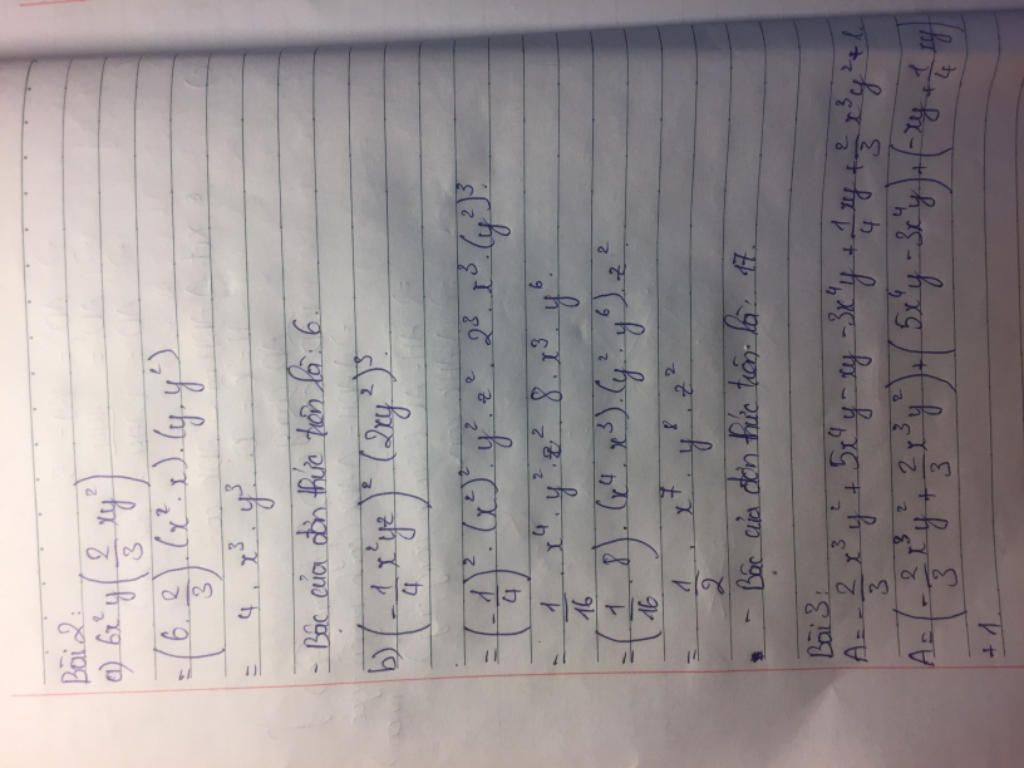 Bài 2:
a) 6x²y (2/3 xy²)
= (6 . 2/3) . (x² . x) . (y . y²)
= 4 . x³ . y³
- Bậc của đơn thức trên là: 6.
b) (-1/4 x²yz)² (2xy²)³
= (-1/4)² . (x²)² . y² . z² . 2³ . x³ . (y²)³.
= 1/16 x⁴ . y² . z² 8 . x³ . y⁶.
= (1/16 . 8) . (x⁴ . x³) . (y² . y⁶) . z²
= 1/2 . x⁷ . y⁸ . z²
- Bậc của đơn thức trên là: 17.
Bài 3:
A = -2/3 x³y² + 5x⁴y - xy - 3x⁴y + 1/4 xy + 2/3 x³y² + 1
A = (-2/3 x³y² + 2/3 x³y²) + (5x⁴y - 3x⁴y) + (-xy + 1/4 xy)
+ 1